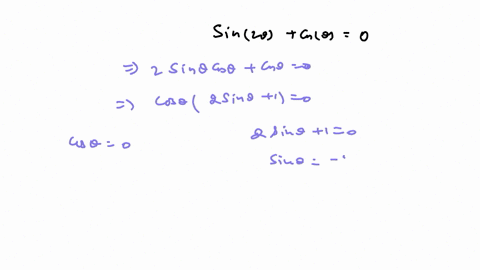 Sin(2θ) + Cos(θ) = 0
⇒ 2 Sinθ Cosθ + Cosθ = 0
⇒ Cosθ ( 2Sinθ + 1) = 0
Cosθ = 0 2 Sinθ + 1 = 0
Sinθ = -